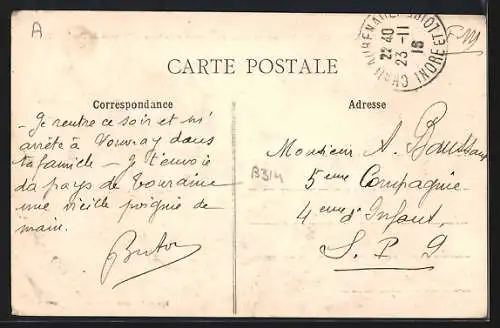 A
F M
CHATEAURENAULT INDRE ET LOIRE
22 40
23 -11
15
CARTE POSTALE
Correspondance
Adresse
- Je rentre ce soir et m'
arrête à Vouvray dans
ta famille - Je t'envoie
du pays de Touraine
une vieille poignée de
main.
B314
Monsieur A.
5eme Compagnie
4eme d'Infant.
S. P. 9